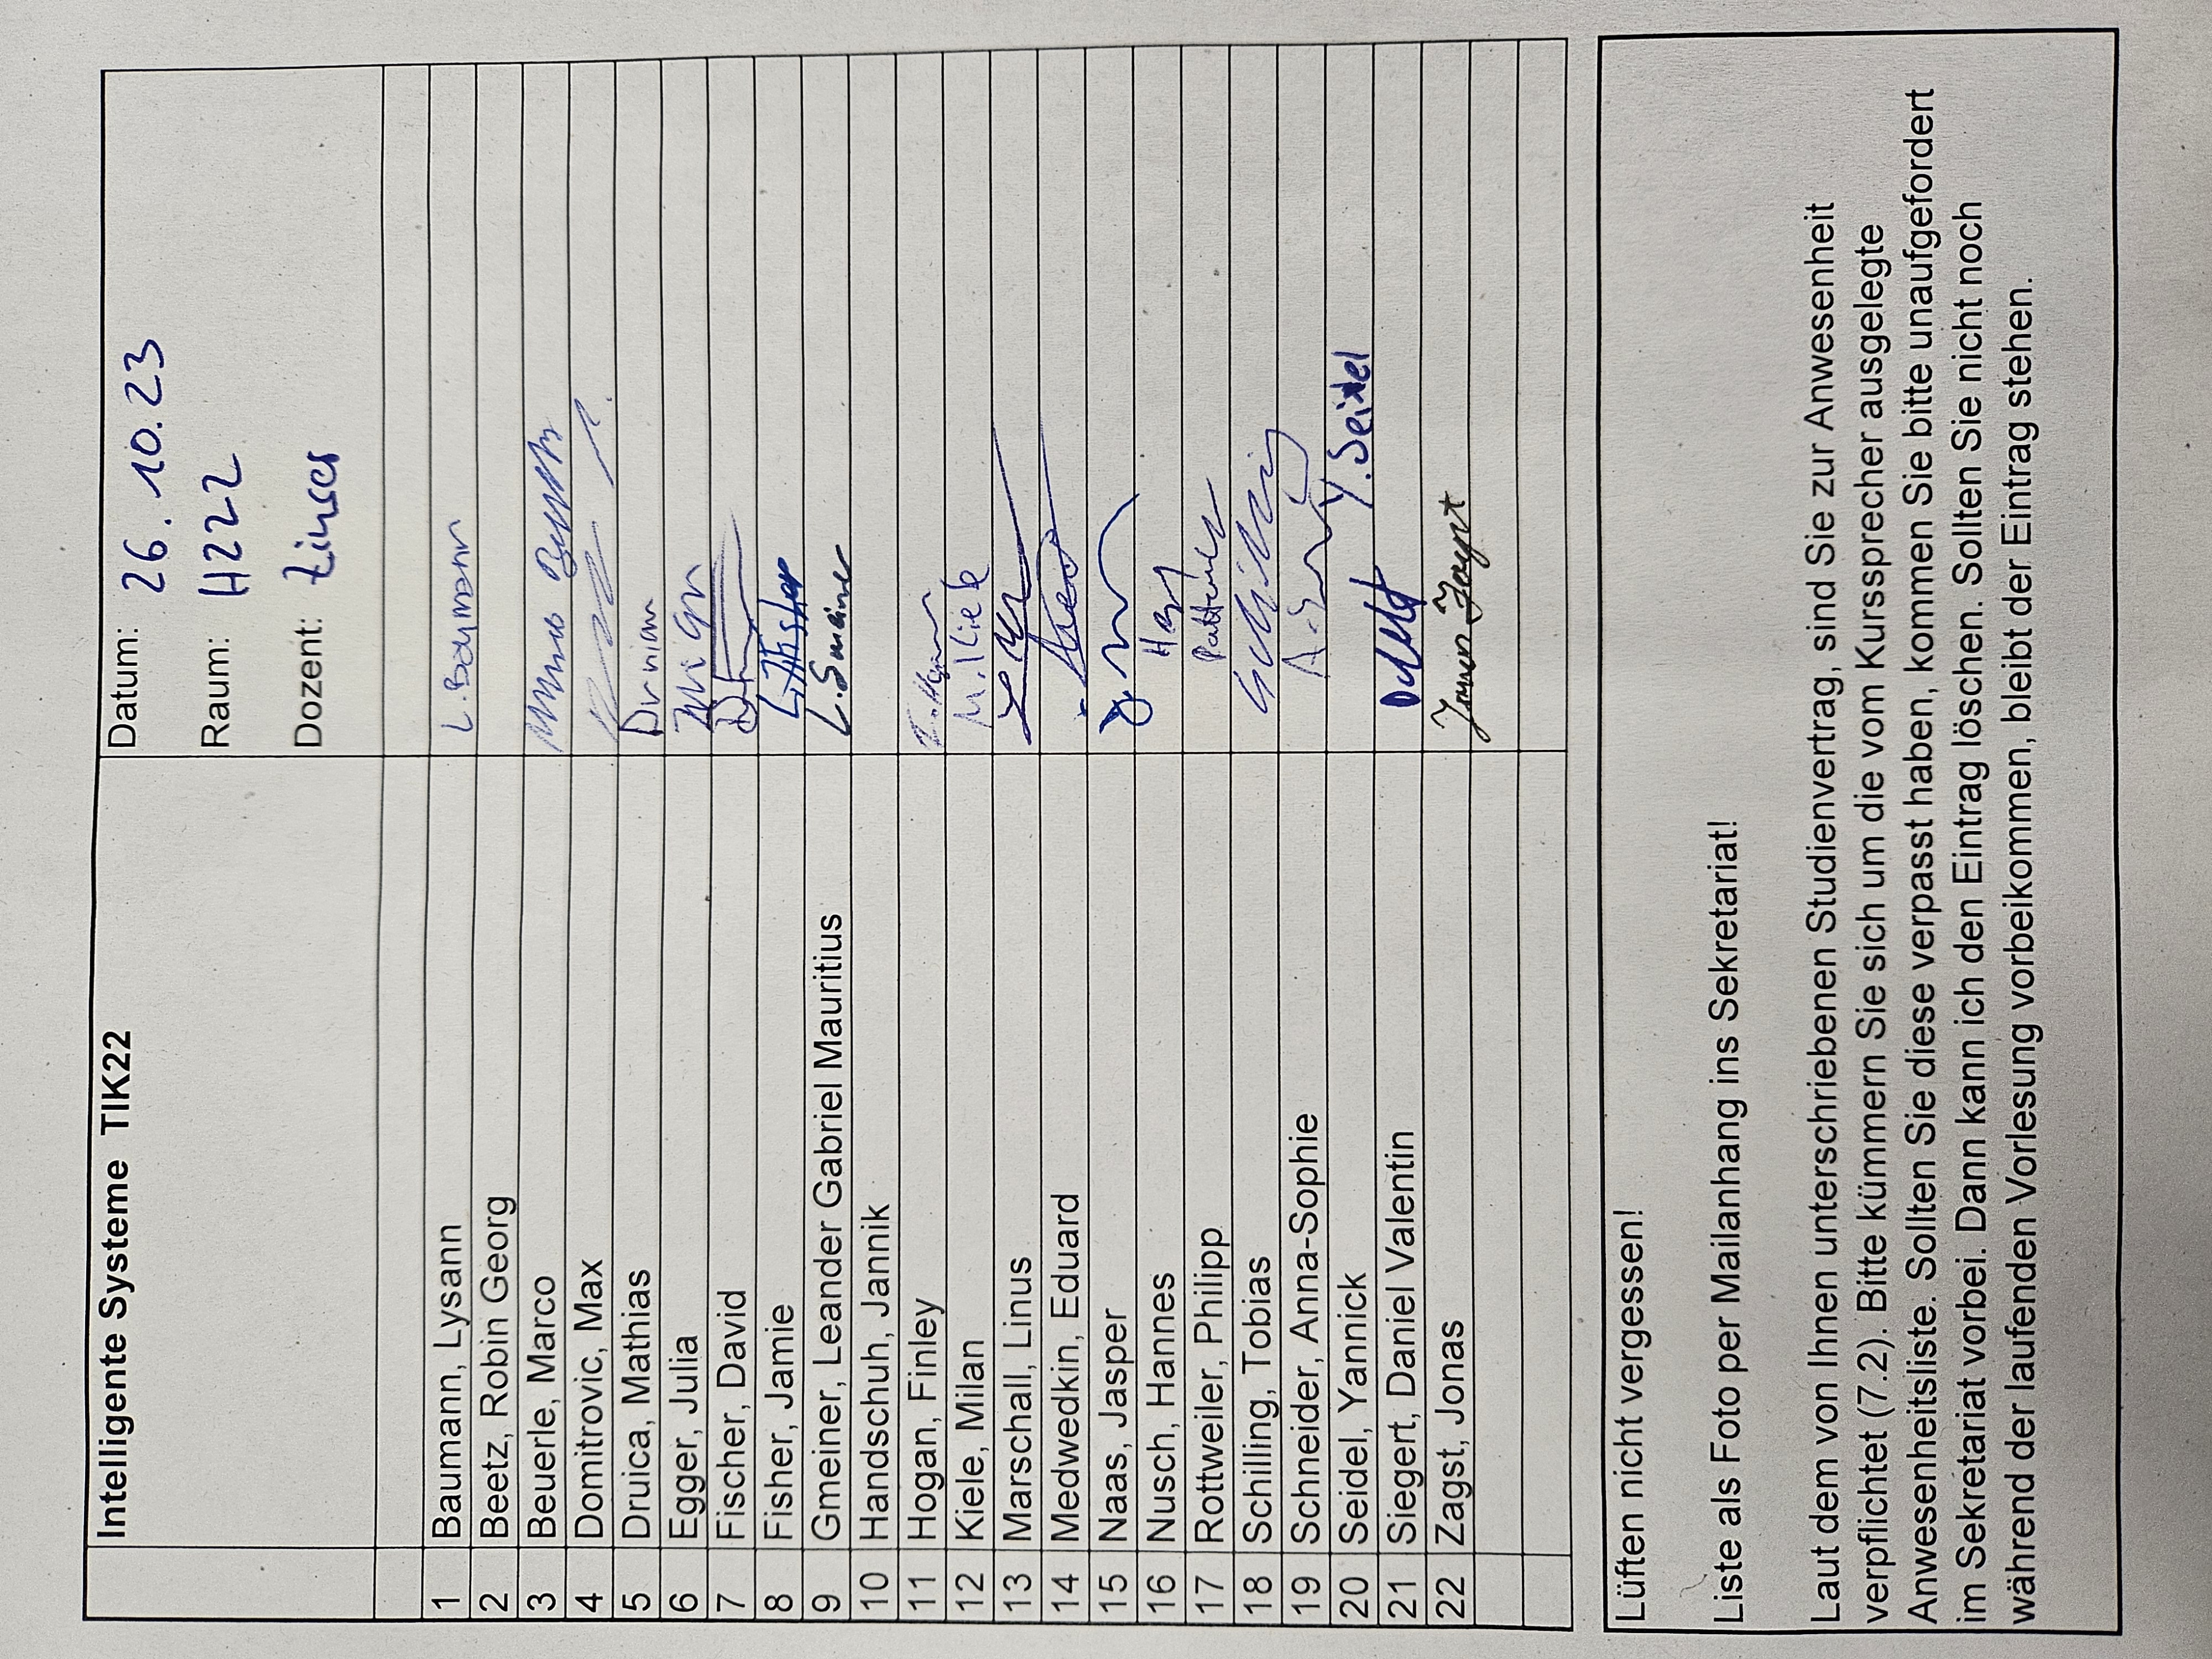 Intelligente Systeme TIK22
Datum: 26.10.23
Raum: H222
Dozent: Zinser
1 Baumann, Lysann L. Baumann
2 Beetz, Robin Georg
3 Beuerle, Marco
4 Domitrovic, Max
5 Druica, Mathias
6 Egger, Julia
7 Fischer, David
8 Fisher, Jamie L.J.Fisher
9 Gmeiner, Leander Gabriel Mauritius L. Gmeiner
10 Handschuh, Jannik
11 Hogan, Finley
12 Kiele, Milan M. Kiele
13 Marschall, Linus
14 Medwedkin, Eduard
15 Naas, Jasper
16 Nusch, Hannes
17 Rottweiler, Philipp
18 Schilling, Tobias Schilling
19 Schneider, Anna-Sophie
20 Seidel, Yannick Y. Seidel
21 Siegert, Daniel Valentin
22 Zagst, Jonas Jonas Zagst
Lüften nicht vergessen!
Liste als Foto per Mailanhang ins Sekretariat!
Laut dem von Ihnen unterschriebenen Studienvertrag, sind Sie zur Anwesenheit
verpflichtet (7.2). Bitte kümmern Sie sich um die vom Kurssprecher ausgelegte
Anwesenheitsliste. Sollten Sie diese verpasst haben, kommen Sie bitte unaufgefordert
im Sekretariat vorbei. Dann kann ich den Eintrag löschen. Sollten Sie nicht noch
während der laufenden Vorlesung vorbeikommen, bleibt der Eintrag stehen.